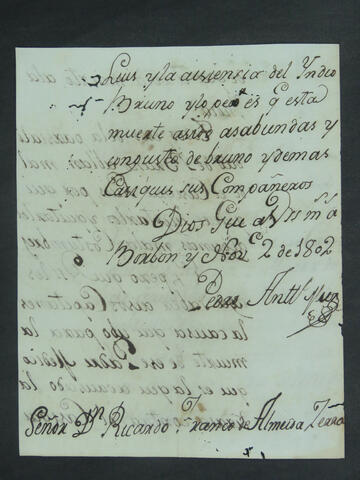 Luis y la aisiensia del Yndio
Bruno y lo peor es q esta
muerte asido asabundas y
conqusto de bruno y demas
Casiquis sus Compañeros
Dios Gue a Vm ms as
Borbon y Nove 2 de 1802
Señor Dn Ricardo Franco de Almeida Serra